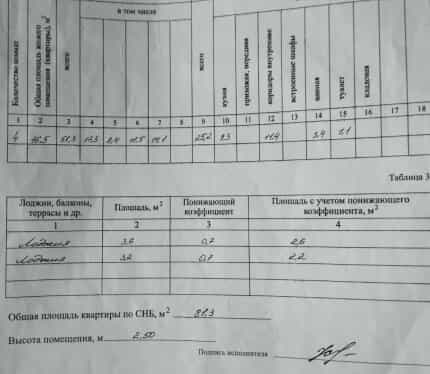 в том числе
Количество комнат
Общая площадь жилого помещения (квартиры), м²
всего
всего
кухня
прихожая, передняя
коридоры внутренние
встроенные шкафы
ванная
туалет
кладовая
1 2 3 4 5 6 7 8 9 10 11 12 13 14 15 16 17 18
4 51,3 25,2 9,3 11,4 3,4 1,1
Таблица 3
Лоджии, балконы, террасы и др.
Площадь, м²
Понижающий коэффициент
Площадь с учетом понижающего коэффициента, м²
1 2 3 4
Лоджия 3,2 0,7
Лоджия 3,2 0,7 2,2
Общая площадь квартиры по СНБ, м² 81,3
Высота помещения, м 2,50
Подпись исполнителя